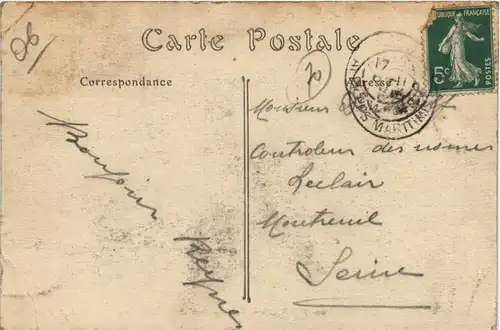 06
Carte Postale
Correspondance
Adresse
RÉPUBLIQUE FRANÇAISE
5c
POSTES
ALPES MARITIMES
Bonjour
Monsieur
Controleur des usines
Leclair
Montreuil
Seine